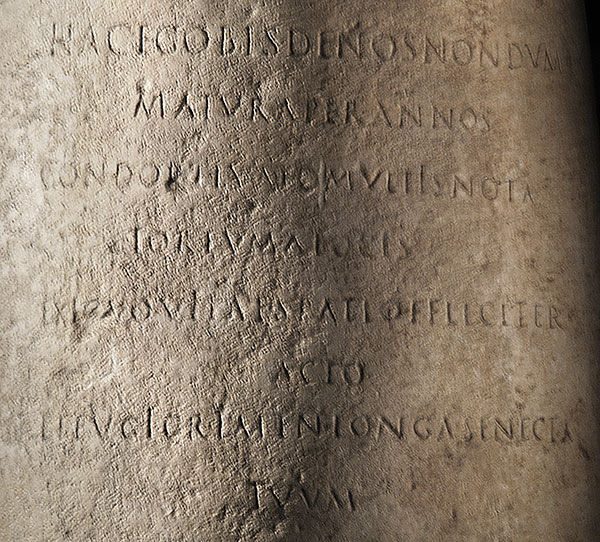 HAC EGO BIS DENOS NONDVM
MATVRA PER ANNOS
CONDOR HVMO MVLTIS NOTA
TOREVMA IOCIS
EXIGVO VITAE SPATIO FELICITER
ACTO
EFFVGI CRIMEN LONGA SENECTA
TVVM